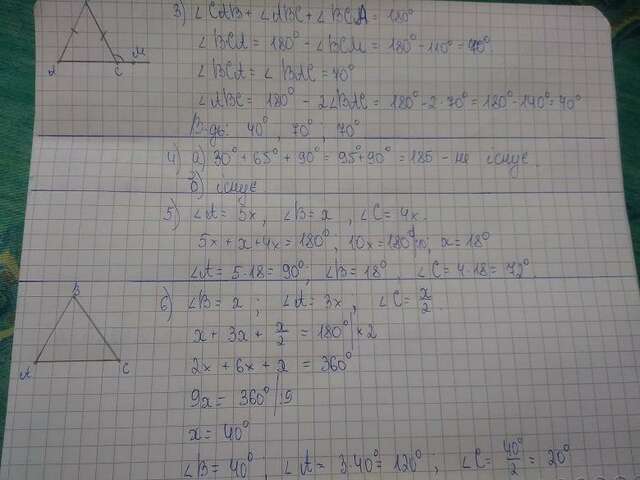 3) ∠CAB + ∠ABC + ∠BCA = 180°
∠BCA = 180° - ∠BCM = 180° - 110° = 70°.
∠BCA = ∠BAC = 70°
∠ABC = 180° - 2∠BAC = 180° - 2·70° = 180° - 140° = 40°
В-дь: 40°, 70°; 70°
A C M
4) а) 30° + 65° + 90° = 95° + 90° = 185 - не існує.
б) існує
5) ∠A = 5x, ∠B = x, ∠C = 4x.
5x + x + 4x = 180°; 10x = 180° |:10; x = 18°
∠A = 5·18 = 90°; ∠B = 18°, ∠C = 4·18 = 72°.
B
A C
6) ∠B = x; ∠A = 3x, ∠C = x/2.
x + 3x + x/2 = 180° | ×2
2x + 6x + x = 360°
9x = 360° |:9
x = 40°
∠B = 40°; ∠A = 3·40° = 120°; ∠C = 40°/2 = 20°